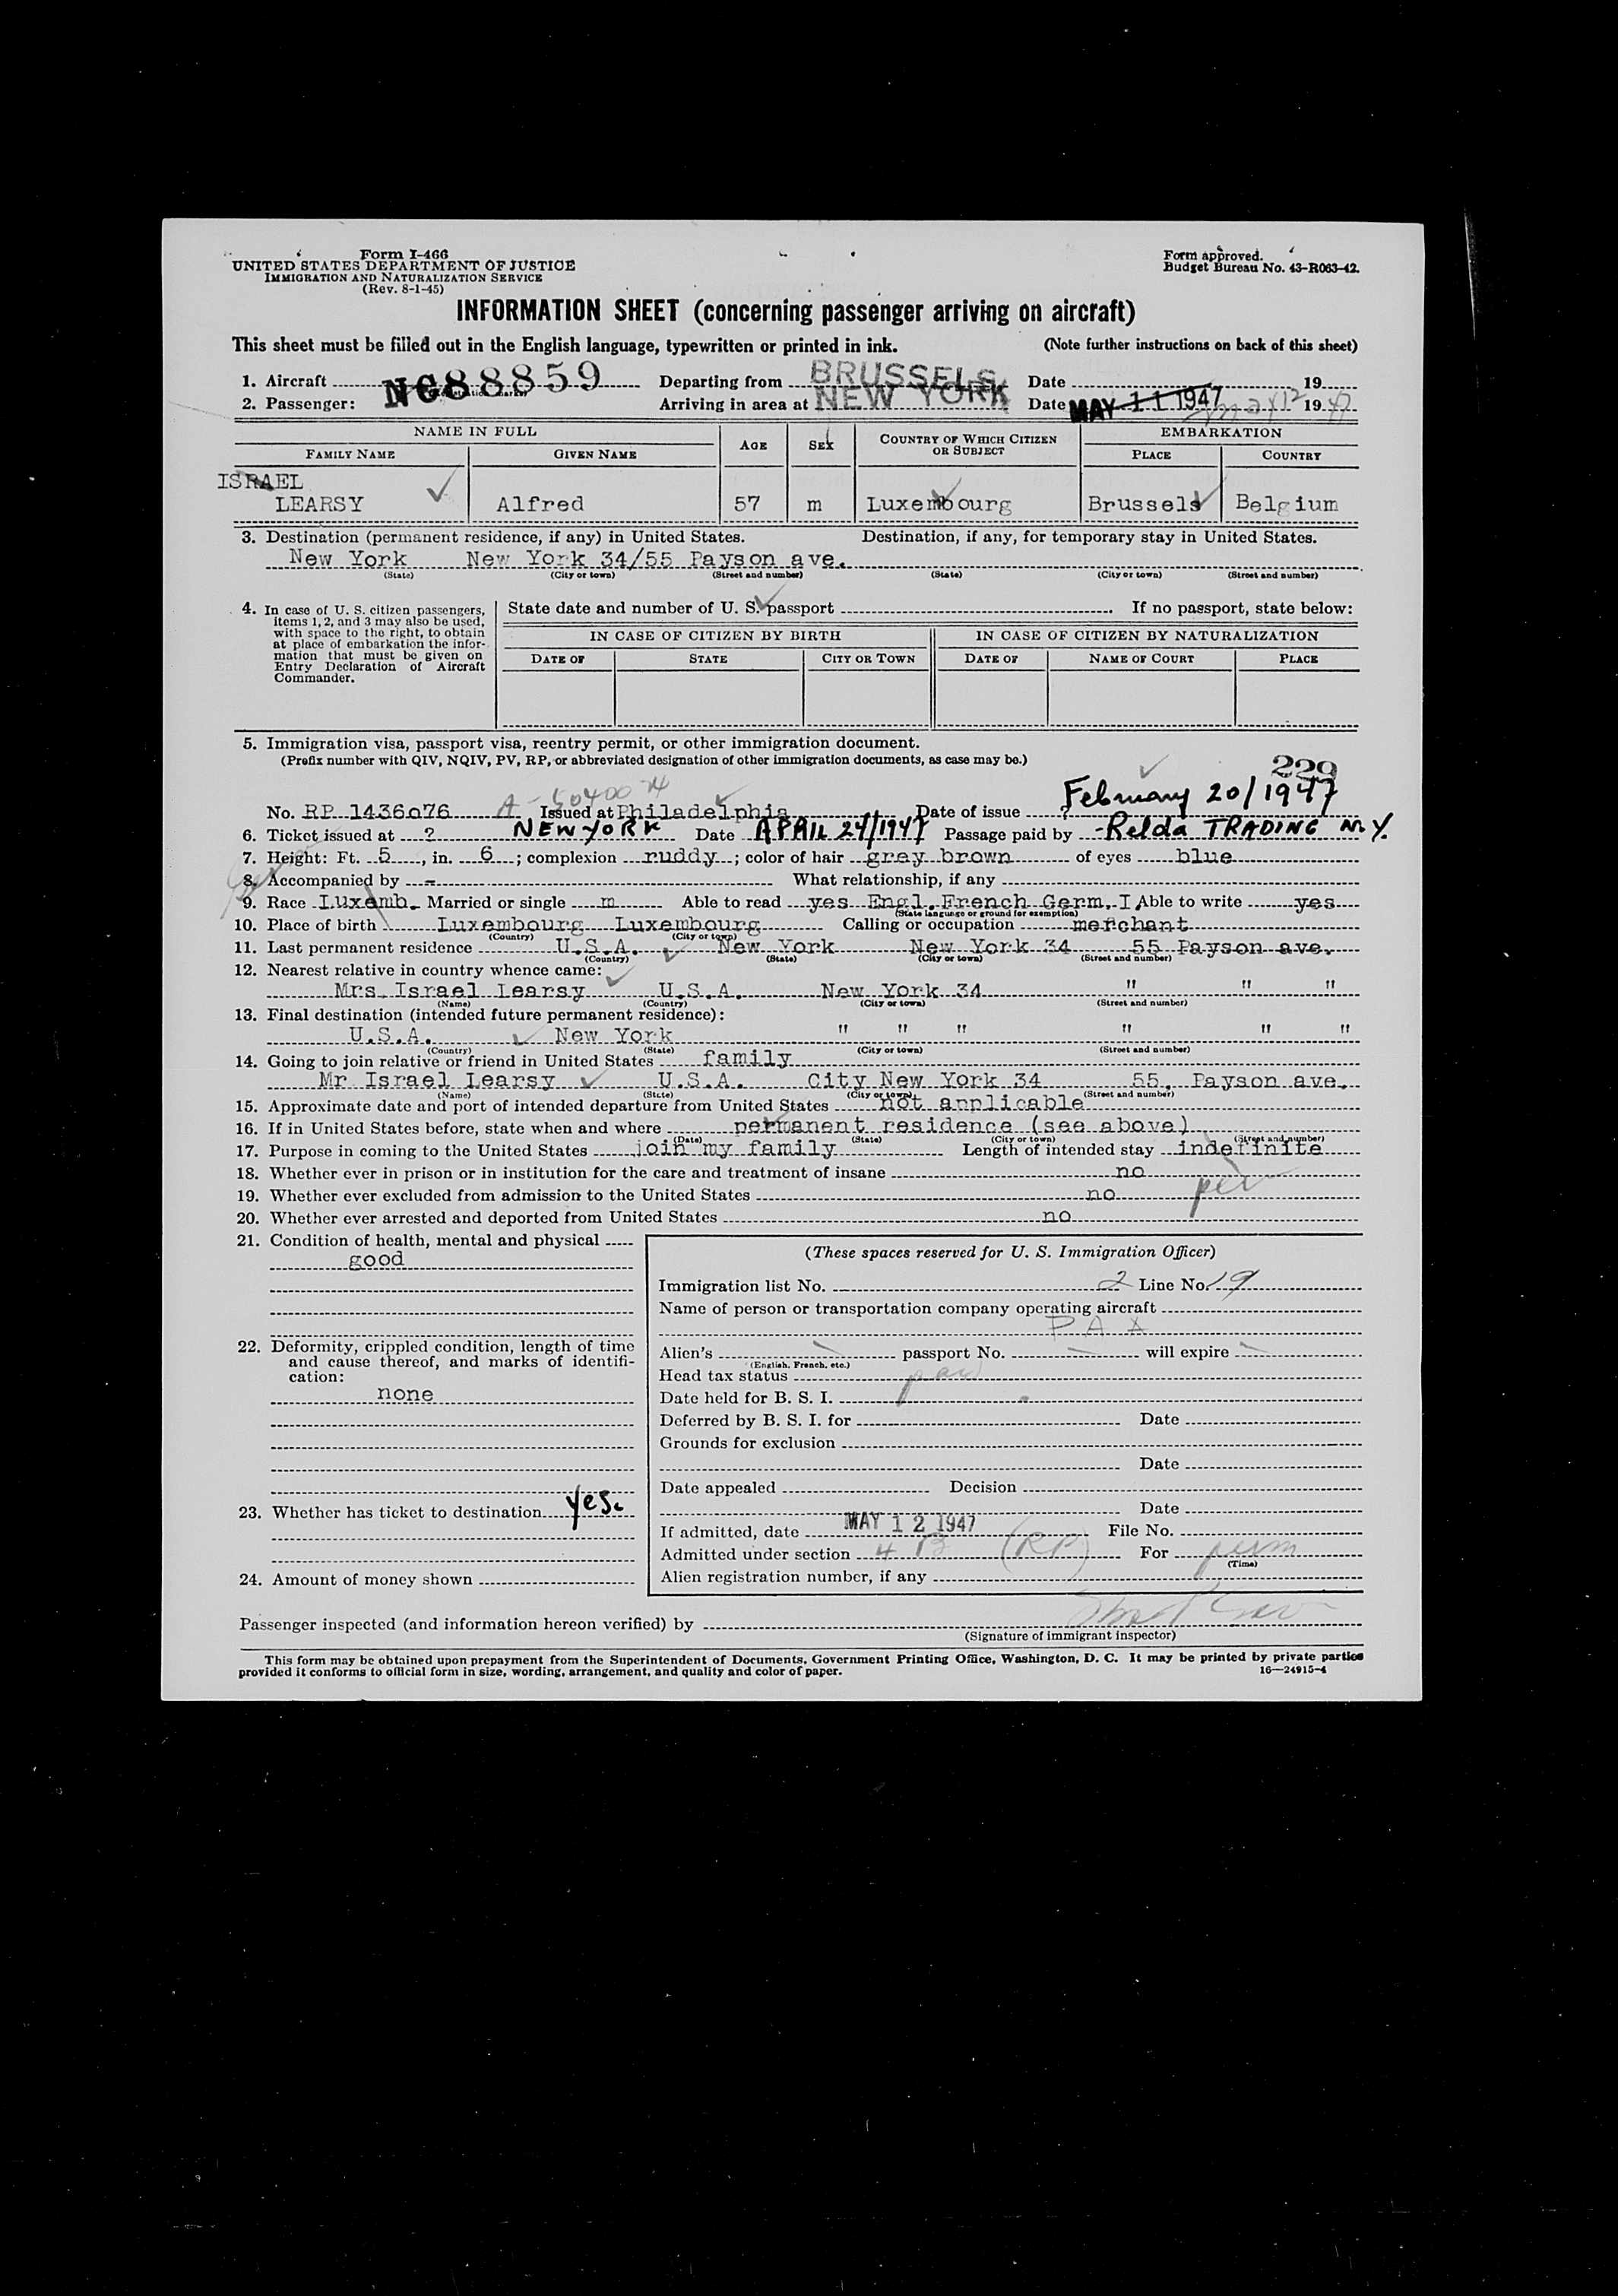 Form I-466
UNITED STATES DEPARTMENT OF JUSTICE
IMMIGRATION AND NATURALIZATION SERVICE
(Rev. 8-1-45)
Form approved.
Budget Bureau No. 43-R063-42.
INFORMATION SHEET (concerning passenger arriving on aircraft)
This sheet must be filled out in the English language, typewritten or printed in ink. (Note further instructions on back of this sheet)
1. Aircraft NC88859 Departing from BRUSSELS Date 19
2. Passenger: Arriving in area at NEW YORK Date MAY 11 1947 May 12 1947
NAME IN FULL AGE SEX COUNTRY OF WHICH CITIZEN OR SUBJECT EMBARKATION
FAMILY NAME GIVEN NAME PLACE COUNTRY
ISRAEL
LEARSY Alfred 57 m Luxembourg Brussels Belgium
3. Destination (permanent residence, if any) in United States. Destination, if any, for temporary stay in United States.
New York New York 34/55 Payson ave.
(State) (City or town) (Street and number) (State) (City or town) (Street and number)
4. In case of U. S. citizen passengers, items 1, 2, and 3 may also be used, with space to the right, to obtain at place of embarkation the information that must be given on Entry Declaration of Aircraft Commander.
State date and number of U. S. passport If no passport, state below:
IN CASE OF CITIZEN BY BIRTH IN CASE OF CITIZEN BY NATURALIZATION
DATE OF STATE CITY OR TOWN DATE OF NAME OF COURT PLACE
5. Immigration visa, passport visa, reentry permit, or other immigration document.
(Prefix number with QIV, NQIV, PV, RP, or abbreviated designation of other immigration documents, as case may be.)
229
No. RP 1436076 Issued at Philadelphia Date of issue ? February 20/1947
6. Ticket issued at ? NEW YORK Date APRIL 24/1947 Passage paid by - Relda TRADING N.Y.
7. Height: Ft. 5, in. 6; complexion ruddy; color of hair grey brown of eyes blue
8. Accompanied by - What relationship, if any
9. Race Luxemb. Married or single m Able to read yes Engl. French Germ. I Able to write yes
(State language or ground for exemption)
10. Place of birth Luxembourg Luxembourg Calling or occupation merchant
(Country) (City or town)
11. Last permanent residence U.S.A. New York New York 34 55 Payson ave.
(Country) (State) (City or town) (Street and number)
12. Nearest relative in country whence came:
Mrs Israel Learsy U.S.A. New York 34 " " "
(Name) (Country) (City or town) (Street and number)
13. Final destination (intended future permanent residence):
U.S.A. New York " " " " " "
(Country) (State) (City or town) (Street and number)
14. Going to join relative or friend in United States family
Mr Israel Learsy U.S.A. City New York 34 55. Payson ave.
(Name) (State) (City or town) (Street and number)
15. Approximate date and port of intended departure from United States not applicable
16. If in United States before, state when and where permanent residence (see above)
(Date) (State) (City or town) (Street and number)
17. Purpose in coming to the United States join my family Length of intended stay indefinite
18. Whether ever in prison or in institution for the care and treatment of insane no
19. Whether ever excluded from admission to the United States no
20. Whether ever arrested and deported from United States no
21. Condition of health, mental and physical
good
22. Deformity, crippled condition, length of time and cause thereof, and marks of identification:
none
23. Whether has ticket to destination yes.
24. Amount of money shown
(These spaces reserved for U. S. Immigration Officer)
Immigration list No. 2 Line No. 19
Name of person or transportation company operating aircraft
P A A
Alien's passport No. will expire
(English, French, etc.)
Head tax status
Date held for B. S. I.
Deferred by B. S. I. for Date
Grounds for exclusion
Date
Date appealed Decision
Date
If admitted, date MAY 12 1947 File No.
Admitted under section 4 B (RP) For perm
(Time)
Alien registration number, if any
Passenger inspected (and information hereon verified) by
(Signature of immigrant inspector)
This form may be obtained upon prepayment from the Superintendent of Documents, Government Printing Office, Washington, D. C. It may be printed by private parties
provided it conforms to official form in size, wording, arrangement, and quality and color of paper. 16—24915-4